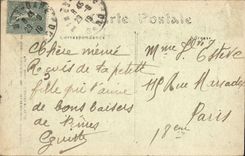 Carte Postale
Correspondance
Chère mémé
Reçois de ta petite
fille qui t'aime
de bons baisers
de Nîmes
Mme
Estève
115 Rue Marcadet
Paris
18eme